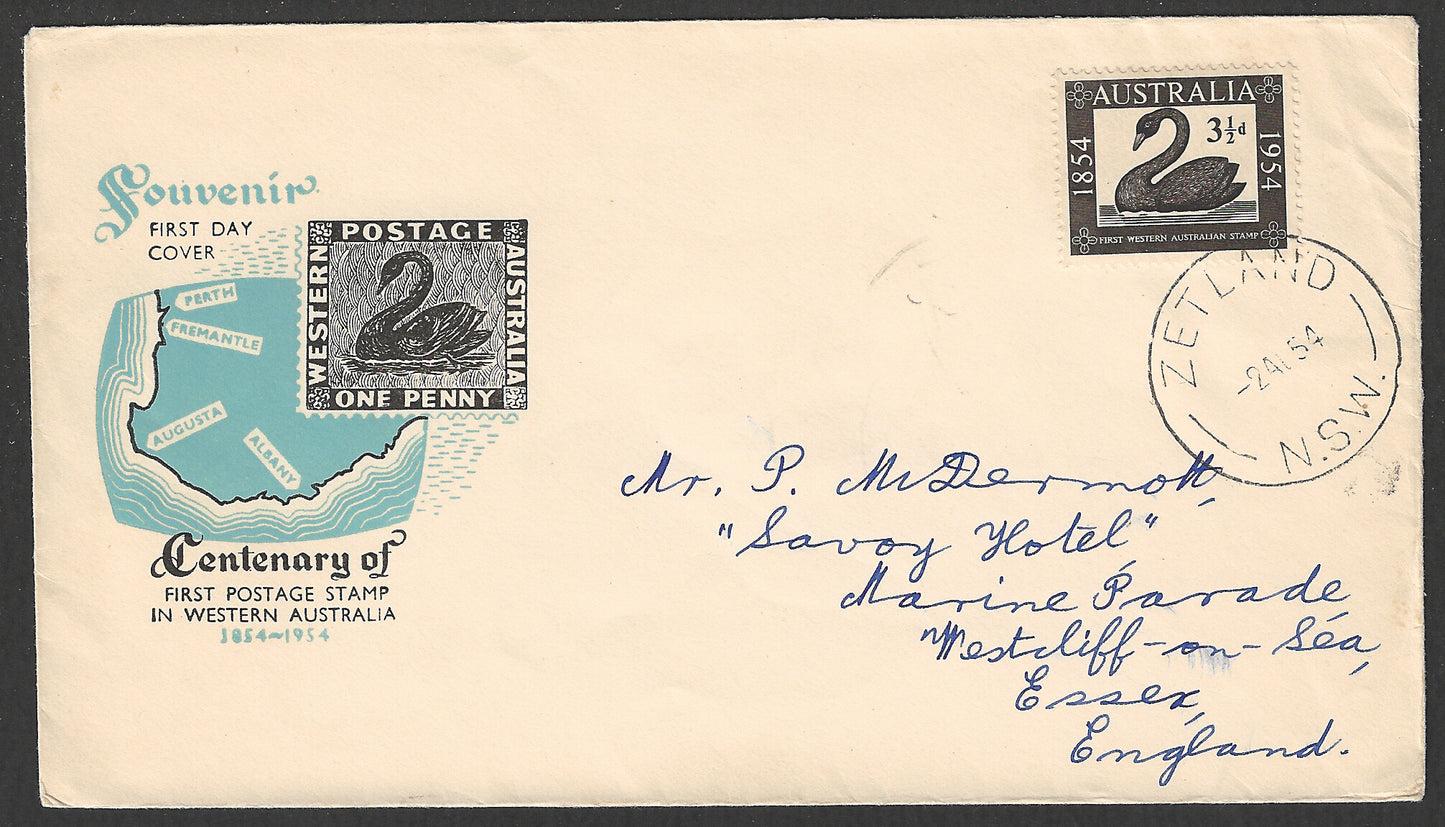 Souvenir
FIRST DAY
COVER
PERTH
FREMANTLE
AUGUSTA
ALBANY
POSTAGE
WESTERN
AUSTRALIA
ONE PENNY
Centenary of
FIRST POSTAGE STAMP
IN WESTERN AUSTRALIA
1854~1954
AUSTRALIA
1854
3½d
1954
FIRST WESTERN AUSTRALIAN STAMP
ZETLAND
-2AU54
N.S.W.
Mr. P. McDermott,
"Savoy Hotel"
Marine Parade
Westcliff-on-Sea,
Essex,
England.